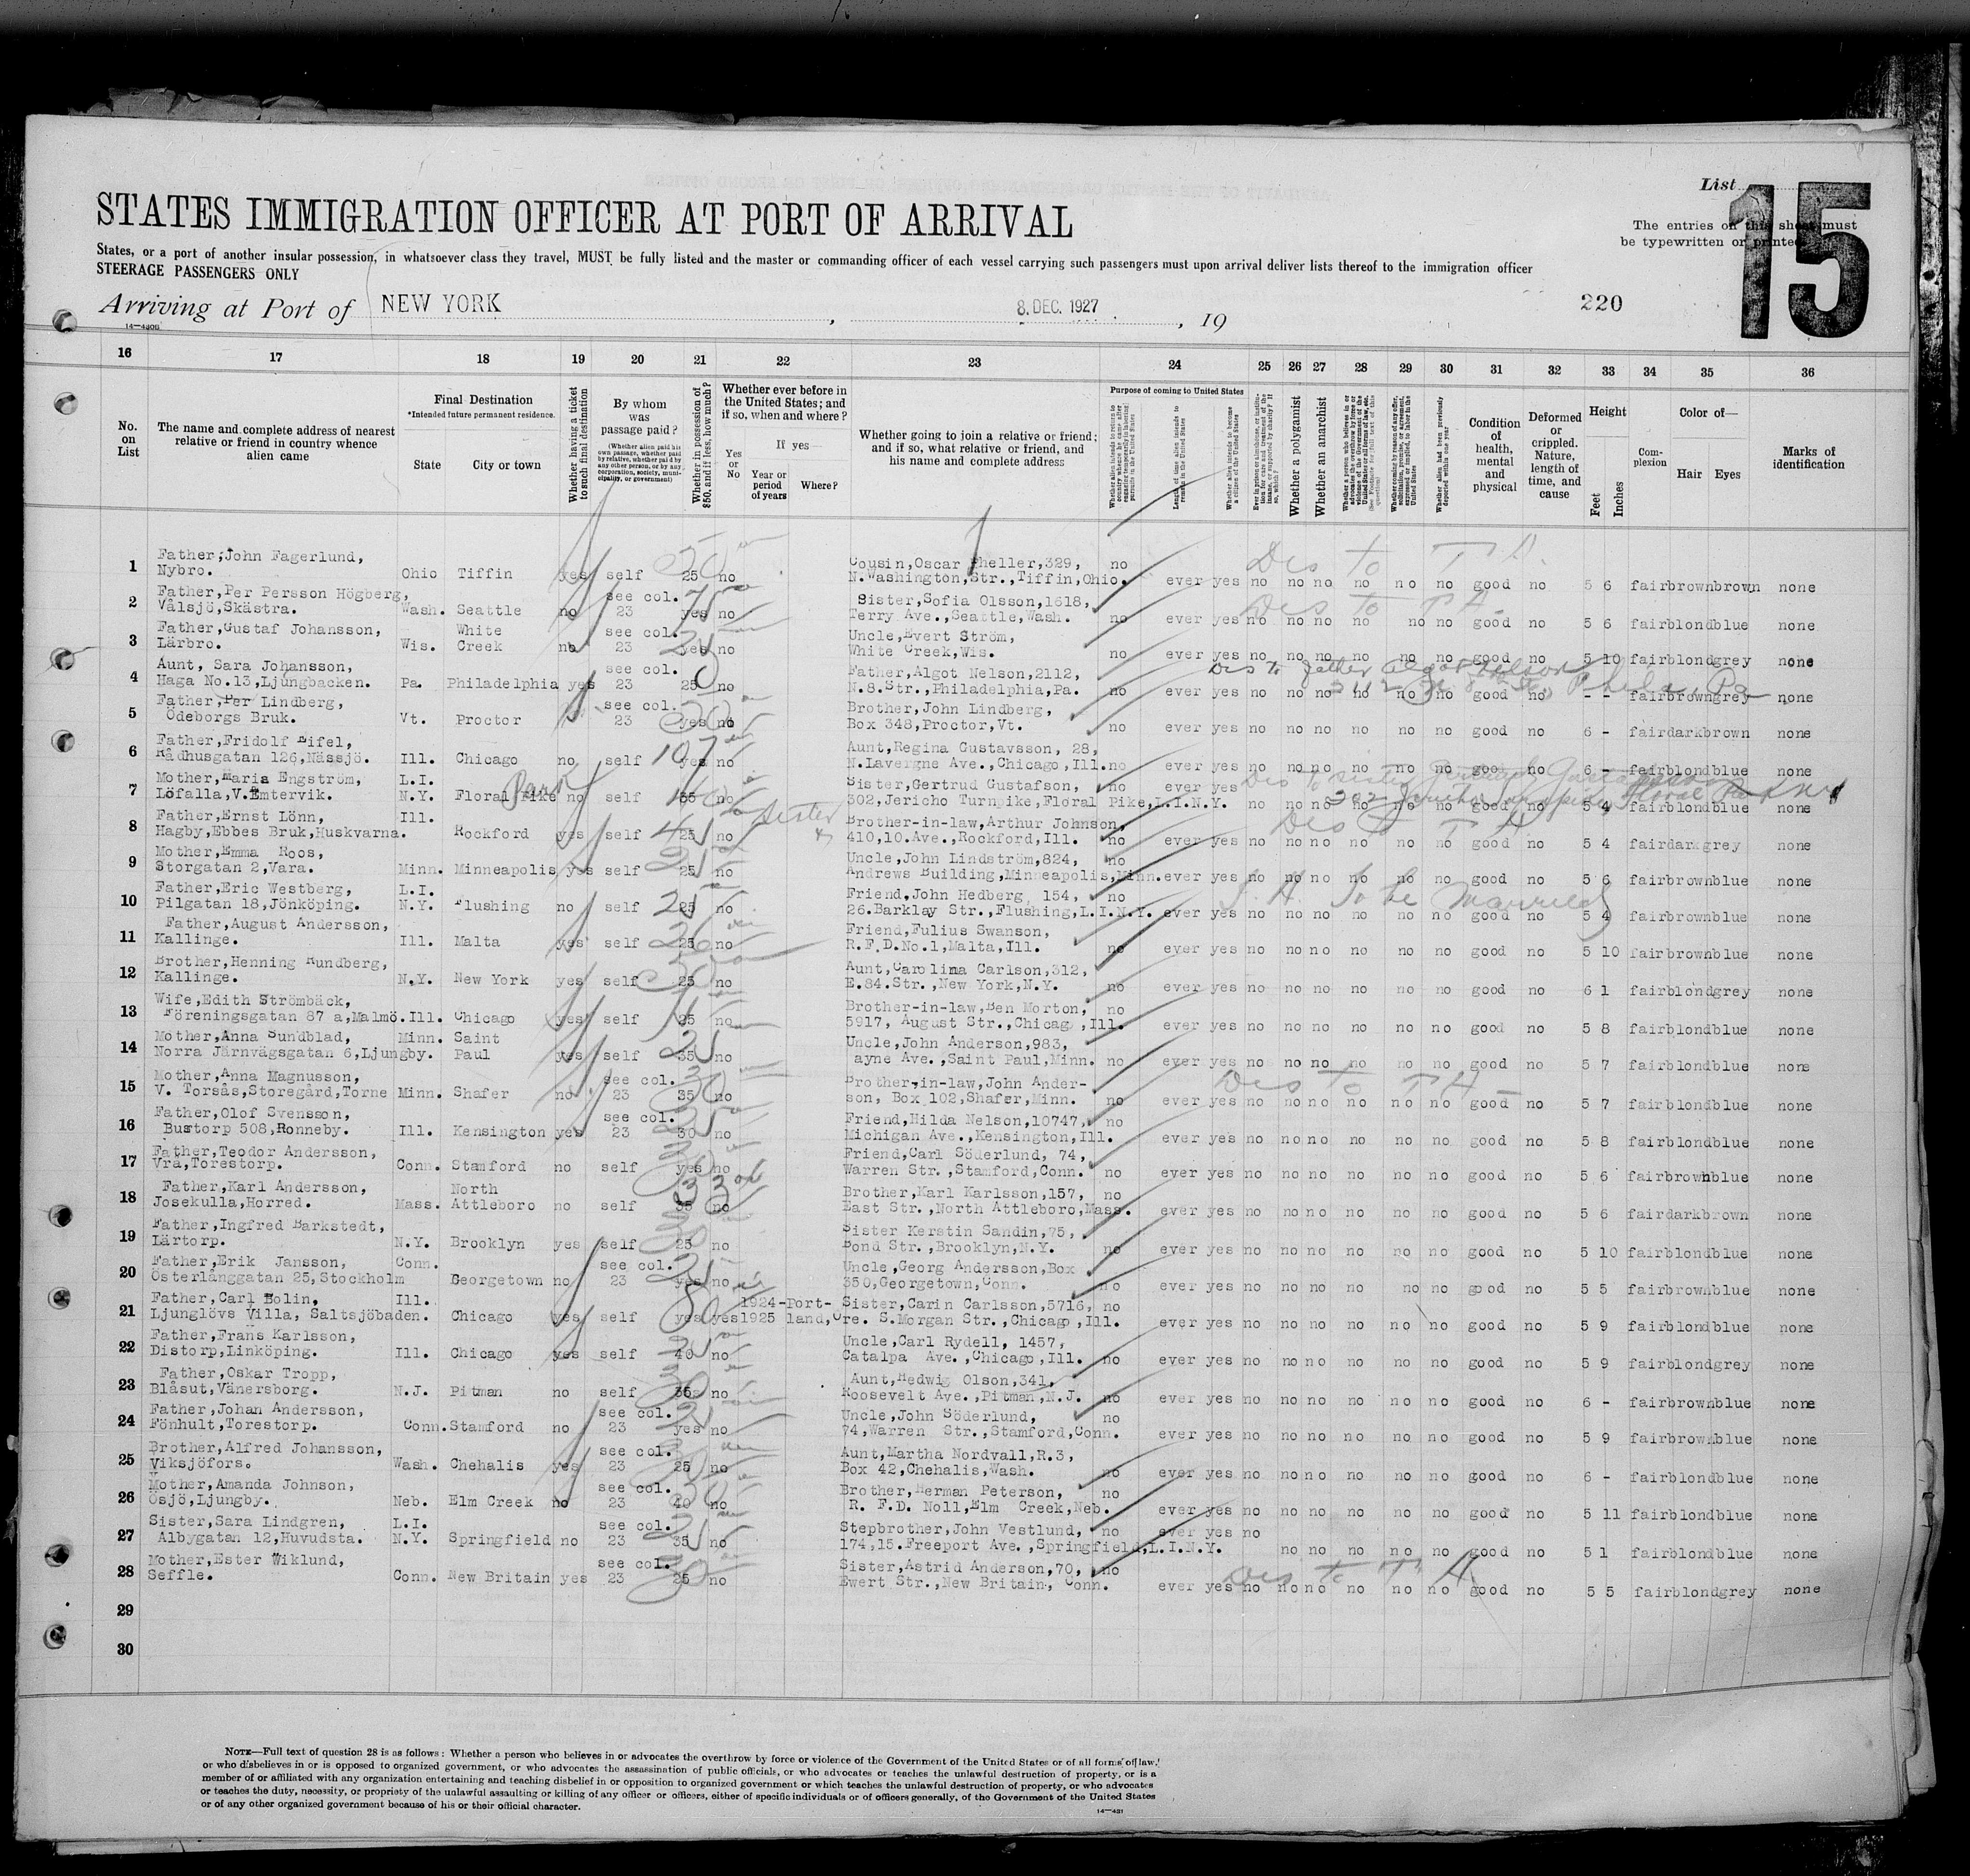 List
15
STATES IMMIGRATION OFFICER AT PORT OF ARRIVAL
The entries on this sheet must
be typewritten or printed
States, or a port of another insular possession, in whatsoever class they travel, MUST be fully listed and the master or commanding officer of each vessel carrying such passengers must upon arrival deliver lists thereof to the immigration officer
STEERAGE PASSENGERS ONLY
Arriving at Port of NEW YORK , 8. DEC. 1927 , 19 220
16 17 18 19 20 21 22 23 24 25 26 27 28 29 30 31 32 33 34 35 36
No. on List
The name and complete address of nearest relative or friend in country whence alien came
Final Destination
*Intended future permanent residence.
State City or town
Whether having a ticket to such final destination
By whom was passage paid?
(Whether alien paid his own passage, whether paid by relative, whether paid by any other person, or by any corporation, society, municipality, or government)
Whether in possession of $50, and if less, how much?
Whether ever before in the United States; and if so, when and where?
Yes or No
If yes—
Year or period of years
Where?
Whether going to join a relative or friend; and if so, what relative or friend, and his name and complete address
Purpose of coming to United States
Length of time alien intends to remain in the United States
Whether alien intends to become a citizen of the United States
Whether a polygamist
Whether an anarchist
Whether alien had been previously deported within one year
Condition of health, mental and physical
Deformed or crippled. Nature, length of time, and cause
Height
Feet Inches
Complexion
Color of—
Hair Eyes
Marks of identification
1 Father,John Fagerlund, Cousin,Oscar Pheller,329, no
Nybro. Ohio Tiffin yes self 25 no N.Washington,Str.,Tiffin,Ohio. ever yes no no no no no no good no 5 6 fair brown brown none
Des to T A.
2 Father,Per Persson Högberg, see col. Sister,Sofia Olsson,1618,
Vålsjö,Skästra. Wash. Seattle no 23 yes no Terry Ave.,Seattle,Wash. no ever yes no no no no no no good no 5 6 fair blond blue none
Des to T A-
3 Father,Gustaf Johansson, White see col. Uncle,Evert Ström,
Lärbro. Wis. Creek no 23 yes no White Creek,Wis. no ever yes no no no no no no good no 5 10 fair blond grey none
4 Aunt, Sara Johansson, see col. Father,Algot Nelson,2112,
Haga No.13,Ljungbacken. Pa. Philadelphia yes 23 25 no N.8.Str.,Philadelphia,Pa. no ever yes no no no no no no good no - - fair brown grey none
Des to father Algot Nelson
2112 N 8th St, Phela, Pa
5 Father,Per Lindberg, see col. Brother, John Lindberg,
Ödeborgs Bruk. Vt. Proctor 23 yes no Box 348,Proctor,Vt. no ever yes no no no no no no good no 6 - fair dark brown none
6 Father,Fridolf Eifel, Aunt,Regina Gustavsson, 28,
Rådhusgatan 126,Nässjö. Ill. Chicago no self 107 yes no N.Lavergne Ave.,Chicago,Ill. no ever yes no no no no no no good no 6 - fair blond blue none
7 Mother,Maria Engström, L.I. Park Sister,Gertrud Gustafson, no ever yes
Löfalla,V.Emtervik. N.Y. Floral Pike no self no 302,Jericho Turnpike,Floral Pike,L.I.N.Y. no no no no no no good no 5 4 fair blond blue none
8 Father,Ernst Lönn, Ill. Sister Brother-in-law,Arthur Johnson,
Hagby,Ebbes Bruk,Huskvarna. Rockford yes self 25 no 410,10.Ave.,Rockford,Ill. no ever yes no no no no no no good no 5 4 fair dark grey none
Des to T A
9 Mother,Emma Roos, Uncle,John Lindström,824, no
Storgatan 2,Vara. Minn. Minneapolis yes self 25 no Andrews Building,Minneapolis,Minn. ever yes no no no no no no good no 5 6 fair brown blue none
10 Father,Eric Westberg, L.I. Friend,John Hedberg, 154, no
Pilgatan 18,Jönköping. N.Y. Flushing no self 25 no 26.Barklay Str.,Flushing,L.I.N.Y. ever yes no no no no no no good no 5 4 fair brown blue none
To be Married
11 Father,August Andersson, Friend,Fulius Swanson,
Kallinge. Ill. Malta yes self 25 no R.F.D.No.1,Malta,Ill. no ever yes no no no no no no good no 5 10 fair brown blue none
12 Brother,Henning Rundberg, Aunt,Carolina Carlson,312,
Kallinge. N.Y. New York yes self 25 no E.84.Str.,New York,N.Y. no ever yes no no no no no no good no 6 1 fair blond grey none
13 Wife,Edith Strömbäck, Brother-in-law,Ben Morton, no
Föreningsgatan 87 a,Malmö. Ill. Chicago yes self 25 no 5917, August Str.,Chicag ,Ill. ever yes no no no no no no good no 5 8 fair blond blue none
14 Mother,Anna Sundblad, Minn. Saint Uncle,John Anderson,983,
Norra Järnvägsgatan 6,Ljungby. Paul yes self 35 no ayne Ave.,Saint Paul,Minn. no ever yes no no no no no no good no 5 7 fair blond blue none
15 Mother,Anna Magnusson, see col. Brother-in-law,John Ander-
V. Torsås,Storegård,Torne Minn. Shafer no 23 35 no son, Box 102,Shafer,Minn. no ever yes no no no no no no good no 5 7 fair blond blue none
Des to T A -
16 Father,Olof Svensson, see col. Friend,Hilda Nelson,10747, no
Bustorp 508,Ronneby. Ill. Kensington yes 23 30 no Michigan Ave.,Kensington,Ill. ever yes no no no no no no good no 5 8 fair blond blue none
17 Father,Teodor Andersson, Friend,Carl Söderlund, 74,
Vrå,Torestorp. Conn. Stamford no self yes no Warren Str.,Stamford,Conn. no ever yes no no no no no no good no 5 6 fair brown blue none
18 Father,Karl Andersson, North Brother,Karl Karlsson,157, no
Josekulla,Horred. Mass. Attleboro no self 35 no East Str.,North Attleboro,Mass. ever yes no no no no no no good no 5 6 fair dark brown none
19 Father,Ingfred Barkstedt, Sister Kerstin Sandin,75,
Lärtorp. N.Y. Brooklyn yes self 25 no Pond Str.,Brooklyn,N.Y. no ever yes no no no no no no good no 5 10 fair blond blue none
20 Father,Erik Jansson, Conn. see col. Uncle,Georg Andersson,Box
Österlånggatan 25,Stockholm Georgetown no 23 yes no 350,Georgetown,Conn. no ever yes no no no no no no good no 5 5 fair brown blue none
21 Father,Carl Bolin, Ill. 1924-Port- Sister,Carin Carlsson,5716, no
Ljunglövs Villa, Saltsjöbaden. Chicago yes self yes yes 1925 land,Ore. S.Morgan Str.,Chicago,Ill. ever yes no no no no no no good no 5 9 fair blond blue none
22 Father,Frans Karlsson, Uncle,Carl Rydell, 1457,
Distorp,Linköping. Ill. Chicago yes self 40 no Catalpa Ave.,Chicago,Ill. no ever yes no no no no no no good no 5 9 fair blond grey none
23 Father,Oskar Tropp, Aunt,Hedwig Olson,341,
Blåsut,Vänersborg. N.J. Pitman no self 35 no Roosevelt Ave.,Pitman,N.J. no ever yes no no no no no no good no 6 - fair brown blue none
24 Father,Johan Andersson, see col. Uncle,John Söderlund, no
Fönhult,Torestorp. Conn. Stamford no 23 yes no 74,Warren Str.,Stamford,Conn. ever yes no no no no no no good no 5 9 fair brown blue none
25 Brother,Alfred Johansson, see col. Aunt,Martha Nordvall,R.3,
Viksjöfors. Wash. Chehalis yes 23 25 no Box 42,Chehalis,Wash. no ever yes no no no no no no good no 6 - fair blond blue none
26 Mother,Amanda Johnson, see col. Brother,Herman Peterson, no
Ösjö,Ljungby. Neb. Elm Creek no 23 40 no R. F.D. Noll,Elm Creek,Neb. ever yes no no no no no no good no 5 11 fair blond blue none
27 Sister,Sara Lindgren, L.I. see col. Stepbrother,John Vestlund, no ever yes no
Albygatan 12,Huvudsta. N.Y. Springfield no 23 35 no 174,15.Freeport Ave.,Springfield,L.I.N.Y. no no no no no good no 5 1 fair blond blue none
28 Mother,Ester Wiklund, see col. Sister,Astrid Anderson,70, no
Seffle. Conn. New Britain yes 23 25 no Ewert Str.,New Britain, Conn. ever yes no no no no no no good no 5 5 fair blond grey none
Des to T A
29
30
NOTE—Full text of question 28 is as follows: Whether a person who believes in or advocates the overthrow by force or violence of the Government of the United States or of all forms of law,
or who disbelieves in or is opposed to organized government, or who advocates the assassination of public officials, or who advocates or teaches the unlawful destruction of property, or is a
member of or affiliated with any organization entertaining and teaching disbelief in or opposition to organized government or which teaches the unlawful destruction of property, or who advocates
or teaches the duty, necessity, or propriety of the unlawful assaulting or killing of any officer or officers, either of specific individuals or of officers generally, of the Government of the United States
or of any other organized government because of his or their official character.
14—431